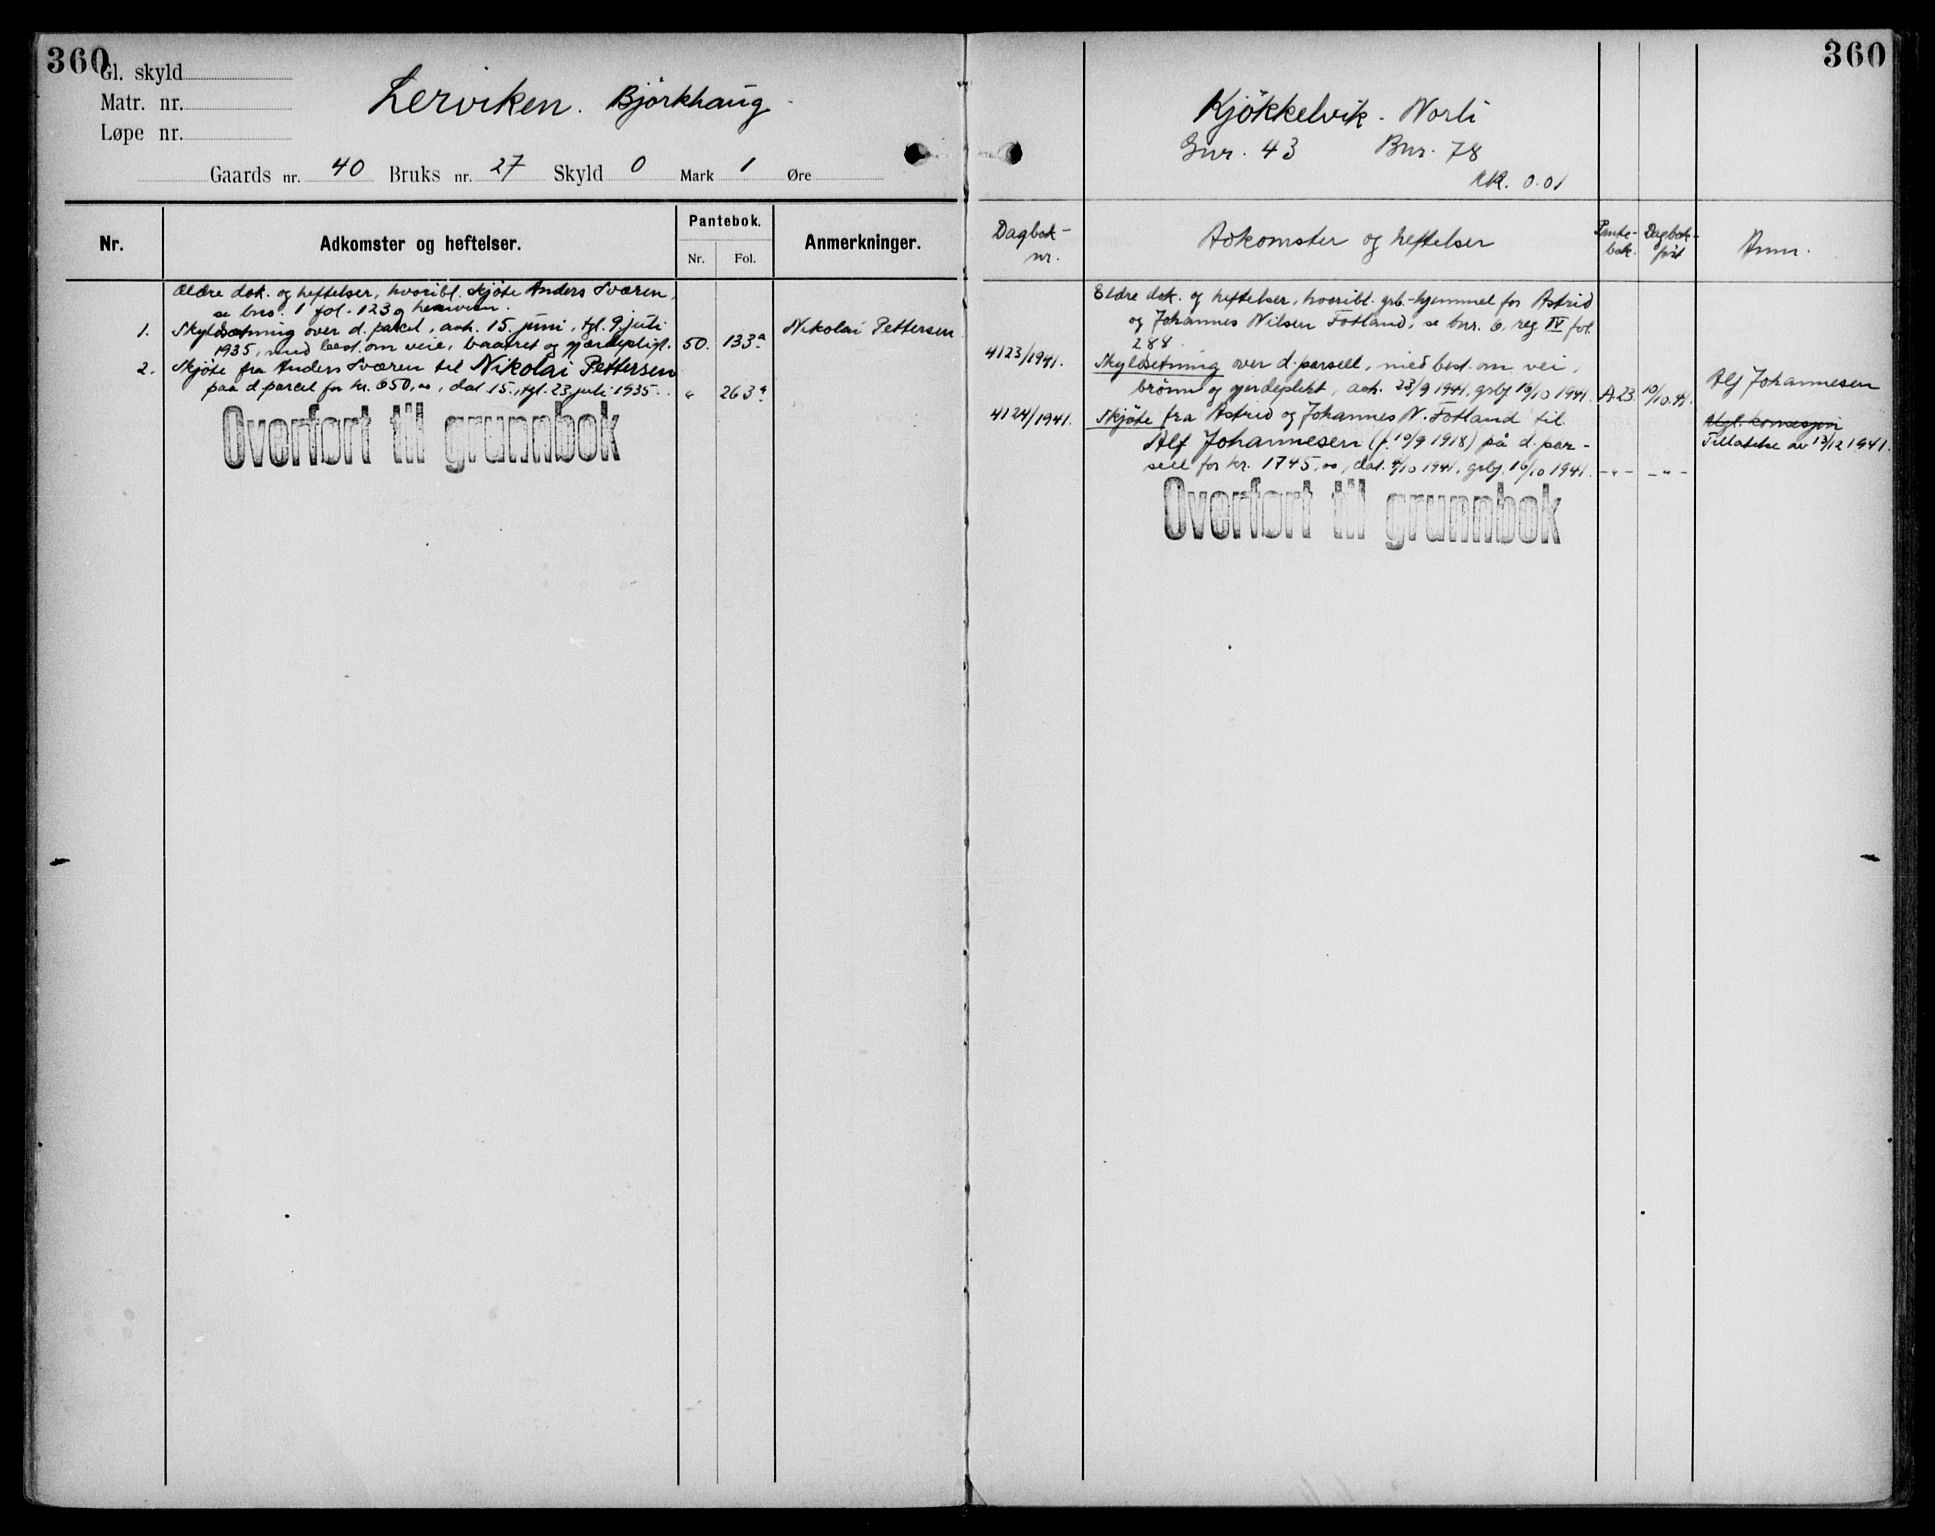 360
Gl. skyld
Matr. nr.
Løpe nr.
Lerviken. Bjørkhaug
Gaards nr. 40 Bruks nr. 27 Skyld 0 Mark 1 Øre
Nr.
Adkomster og heftelser.
Pantebok.
Nr. Fol.
Anmerkninger.
Ældre dok. og heftelser, hvoribl. skjøte Anders Sværen,
se bno. 1 fol. 123 g
1. Skyldsætning over d. parcel, avh. 15. juni, tgl. 9. juli
1935, med best. om veie, baatret og gjærdepligt. 50. 133a Nikolai Pettersen
2. Skjøte fra Anders Sværen til Nikolai Pettersen
paa d. parcel for kr. 650,00, dat. 15., tgl. 23. juli 1935. " 263a
Overført til grunnbok
360
Kjøkkelvik - Norli
Gnr. 43 Bnr. 78
Mk. 0.01
Dagbok-
nr.
Adkomster og heftelser
Pante-
bok.
Dagbok-
ført
Anm.
Eldre dok. og heftelser, hvoribl. grb.-hjemmel for Astrid
og Johannes Nilsen Fotland, se bnr. 6, reg IV fol.
288.
4123/1941. Skyldsetning over d. parsell, med best. om vei,
brønn og gjerdeplikt, avh. 23/9 1941, grbf 10/10 1941. A.23. 10/10.41. Alf Johannesen
4124/1941. Skjøte fra Astrid og Johannes N. Fotland til
Alf Johannesen (f. 10/9 1918) på d. par-
sell for kr. 1745,00, dat. 4/10 1941, grbf. 10/10 1941. -"- -"-
konsesjon
Tillatelse av 13/12 1941.
Overført til grunnbok